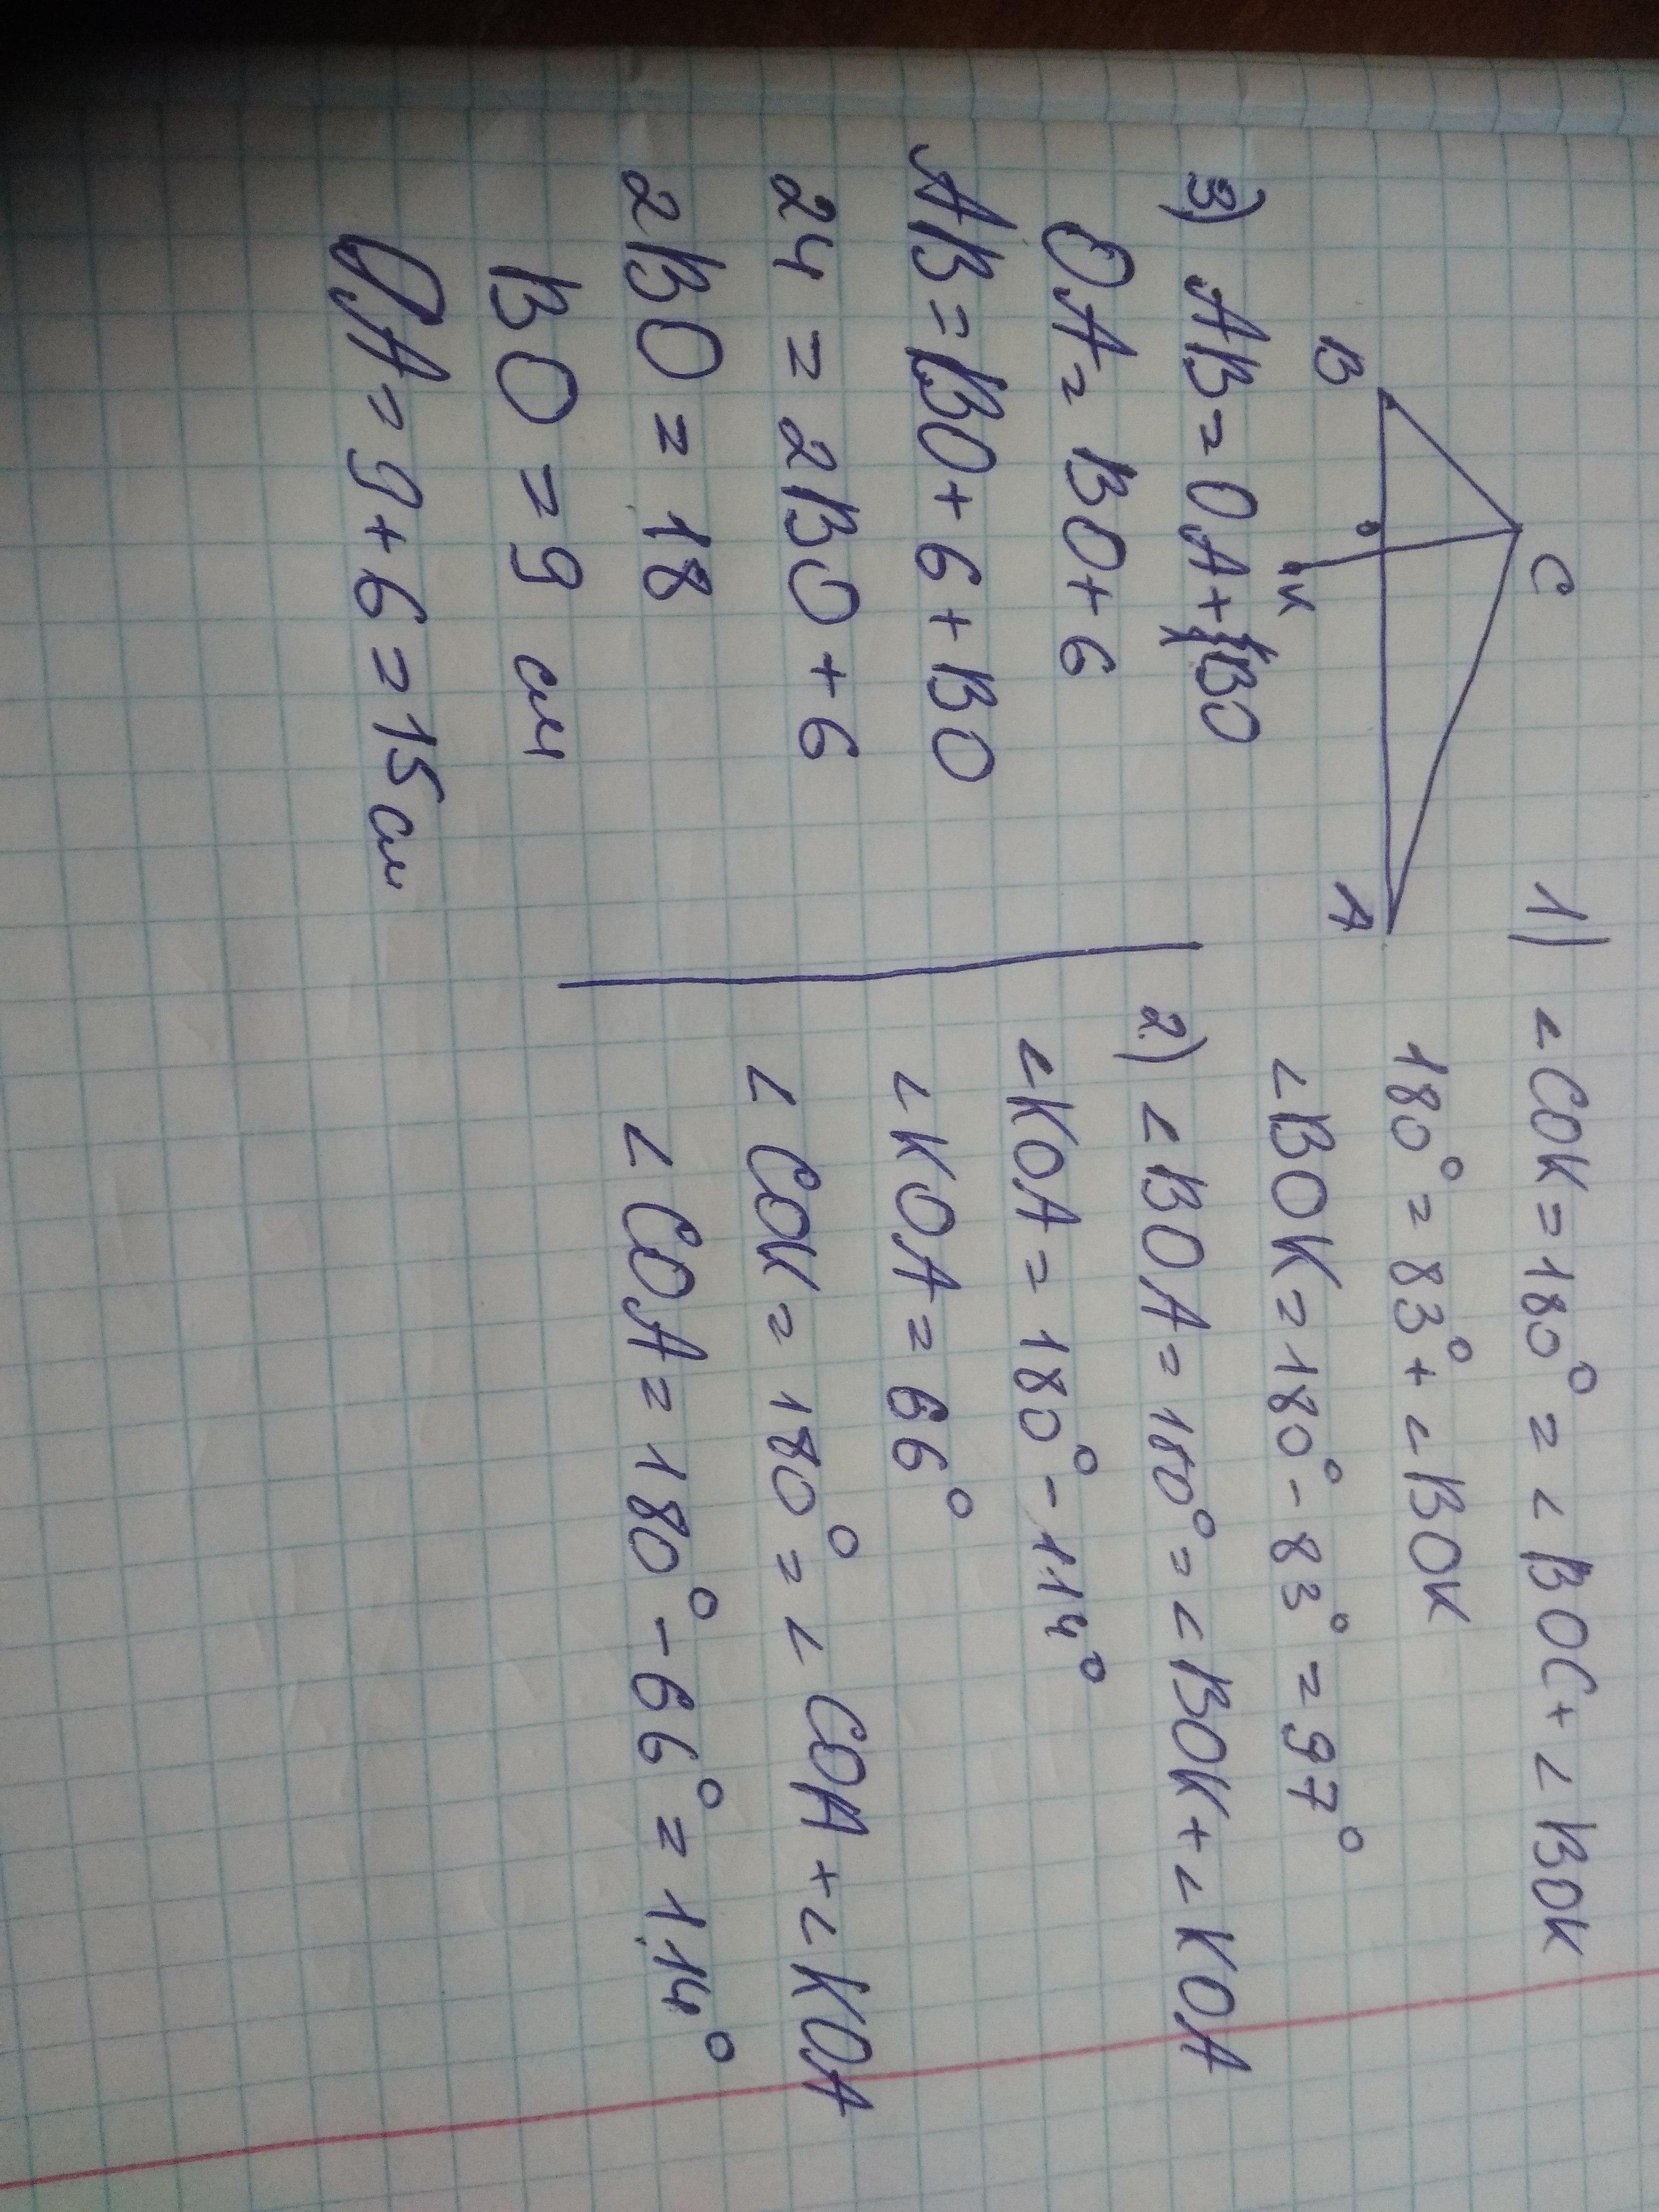 C
B
A
O
K
1) ∠COK = 180° = ∠BOC + ∠BOK
180° = 83° + ∠BOK
∠BOK = 180° - 83° = 97°
2) ∠BOA = 180° = ∠BOK + ∠KOA
∠KOA = 180° - 114°
∠KOA = 66°
∠COK = 180° = ∠COA + ∠KOA
∠COA = 180° - 66° = 114°
3) AB = OA + BO
OA = BO + 6
AB = BO + 6 + BO
24 = 2BO + 6
2BO = 18
BO = 9 см
OA = 9 + 6 = 15 см